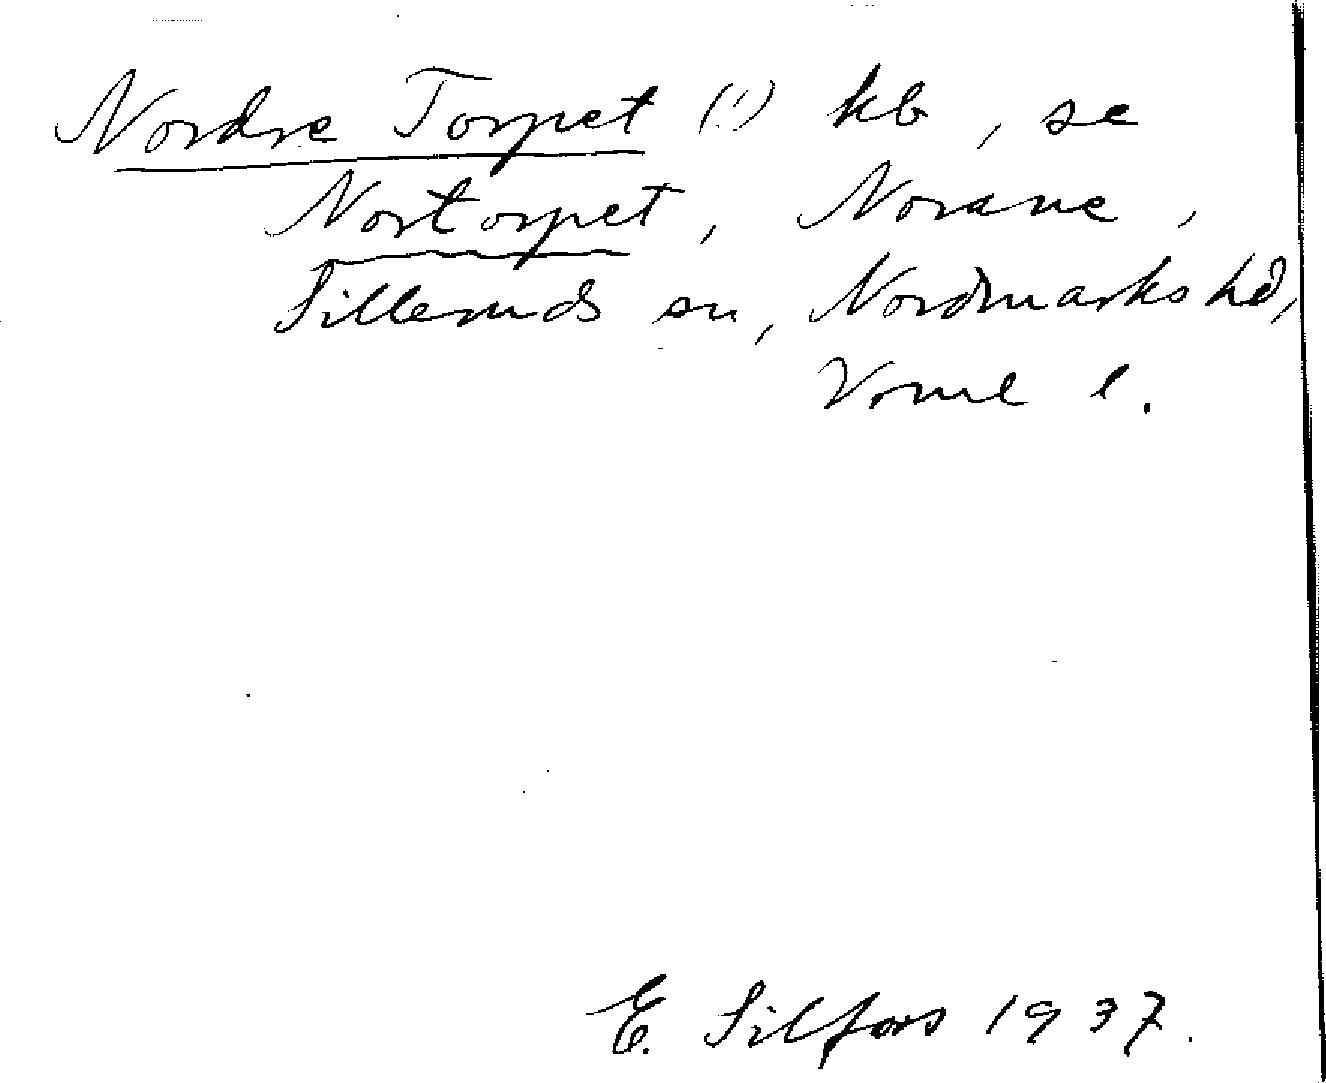 Nordre Torpet (!) kb, se
Nortorpet, Norane,
Silleruds sn, Nordmarks hd,
Vrml l.
E. Silfors 1937.